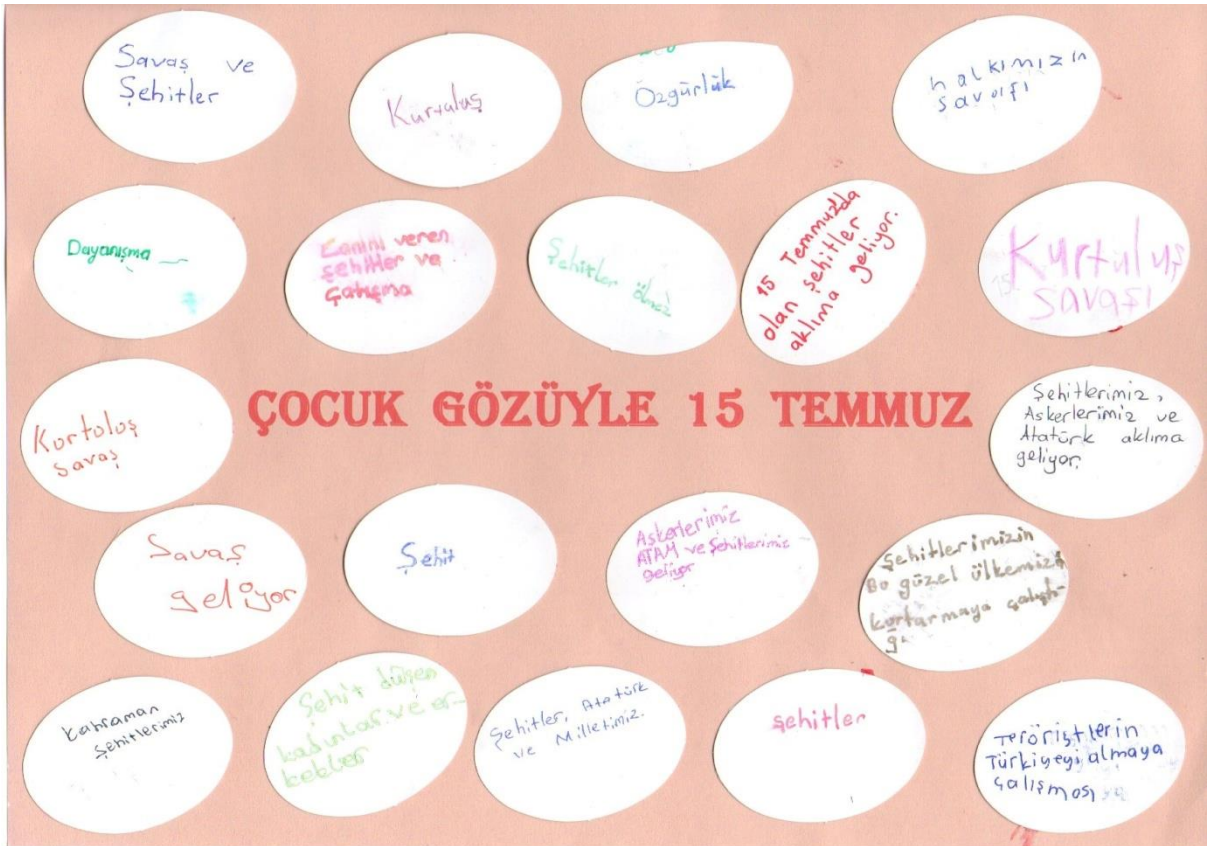 Savaş ve
Şehitler
Kurtuluş
Özgürlük
halkımızın
savaşı
Dayanışma
Canını veren
şehitler ve
çatışma
Şehitler ölmez
15 Temmuzda
olan şehitler
aklıma geliyor.
Kurtuluş
savaşı
Kortoloş
savaş
ÇOCUK GÖZÜYLE 15 TEMMUZ
Şehitlerimiz,
Askerlerimiz ve
Atatürk aklıma
geliyor.
Savaş
geliyor
Şehit
Askerlerimiz
ATAM ve Şehitlerimiz
geliyor
Şehitlerimizin
Bo güzel ülkemizi
kurtarmaya çalıştı-
ğı
kahraman
şehitlerimiz
Şehit düşen
kadınlar ve er-
kekler
Şehitler, Atatürk
ve Milletimiz.
şehitler
Teröristlerin
Türkiyeyi almaya
çalışması